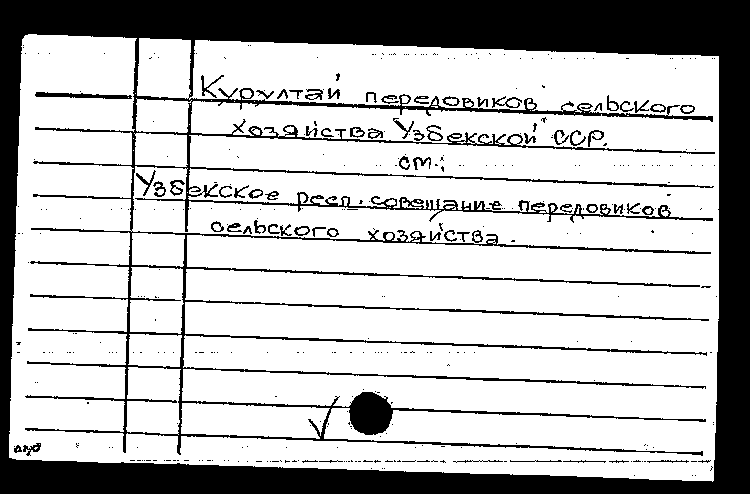 Курултай передовиков сельского
хозяйства Узбекской ССР.
см.:
Узбекское респ. совещание передовиков
сельского хозяйства.